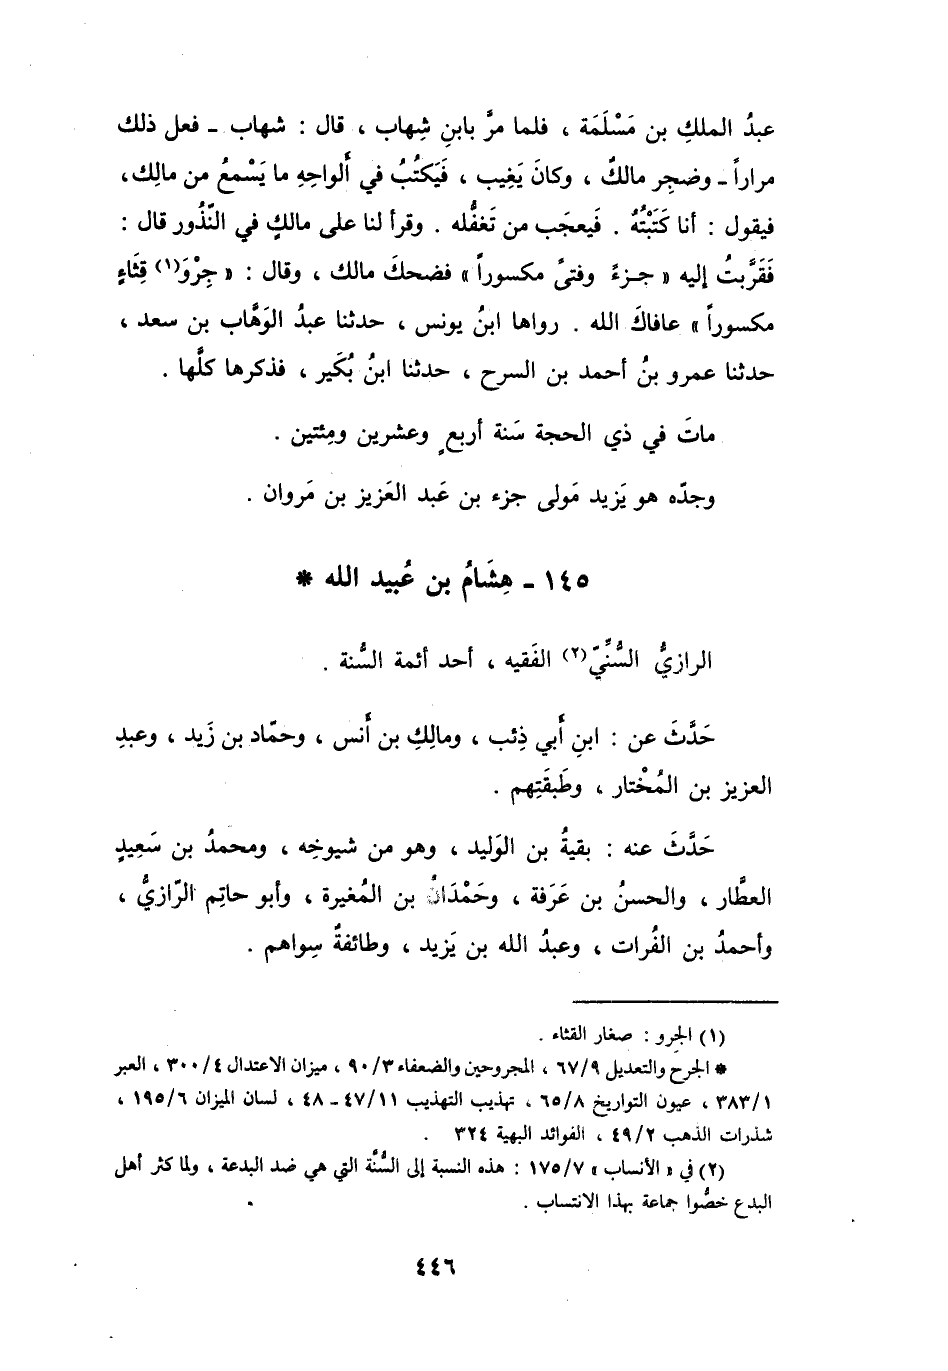 عبدُ الملكِ بن مَسْلَمَة ، فلما مرَّ بابنِ شِهاب ، قال : شهاب ـ فعل ذلك
مراراً ـ وضجِر مالكٌ ، وكانَ يَغِيب ، فَيَكتُبُ في أَلواحِهِ ما يَسْمعُ من مالِك ،
فيقول : أنا كَتَبْتُهُ . فَيعجَب من تَغفُّله . وقرأ لنا على مالكٍ في النّذُور قال :
فَقَرَّبتُ إليه « جـزءً وفتىً مكسوراً » فضحكَ مالك ، وقال : « جِرْوَ(١) قِثَاءٍ
مكسوراً » عافاكَ الله . رواها ابنُ يونس ، حدثنا عبدُ الوَهَّاب بن سعد ،
حدثنا عمرو بنُ أحمد بن السرح ، حدثنا ابنُ بُكَير ، فذكرها كلَّها .
ماتَ في ذي الحجة سَنة أربعٍ وعشرين ومِئتين .
وجدّه هو يَزيد مَولى جزء بن عَبد العَزيز بن مَروان .
١٤٥ ـ هِشَامُ بن عُبيد الله *
الرازيُّ السُّنِّيّ(٢) الفَقيه ، أحد أئمة السُّنة .
حَدَّثَ عن : ابنِ أَبي ذِئب ، ومالِكِ بن أَنس ، وحمّاد بن زَيد ، وعبدِ
العزيز بن المُخْتار ، وطَبقَتِهم .
حَدَّثَ عنه : بقيةُ بن الوَليد ، وهو من شيوخِه ، ومحمدُ بن سَعِيدٍ
العطَّار ، والحسنُ بن عَرَفة ، وحَمْدَانُ بن المُغيرة ، وأبو حاتِم الرّازيُّ ،
وأحمدُ بن الفُرات ، وعبدُ الله بن يَزيد ، وطائفةٌ سِواهم .
(١) الجِرو : صغار القثاء .
* الجرح والتعديل ٦٧/٩ ، المجروحين والضعفاء ٩٠/٣ ، ميزان الاعتدال ٣٠٠/٤ ، العبر
٣٨٣/١ ، عيون التواريخ ٦٥/٨ ، تهذيب التهذيب ٤٧/١١ ـ ٤٨ ، لسان الميزان ١٩٥/٦ ،
شذرات الذهب ٤٩/٢ ، الفوائد البهية ٣٢٤ .
(٢) في « الأنساب » ١٧٥/٧ : هذه النسبة إلى السُّنَّة التي هي ضد البدعة ، ولما كثر أهل
البدع خصُّوا جماعة بهذا الانتساب .
٤٤٦